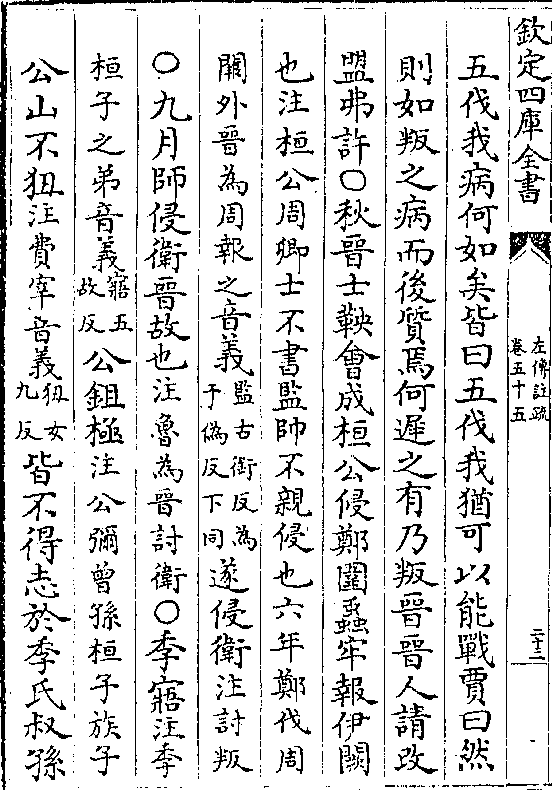 欽定四庫全書
左傳註疏
卷五十五
二十三
五伐我病何如矣皆曰五伐我猶可以能戰賈曰然
則如叛之病而後質焉何遲之有乃叛晉晉人請改
盟弗許○秋晉士鞅會成桓公侵鄭圍蟲牢報伊闕
也注桓公周卿士不書監帥不親侵也六年鄭伐周
闕外晉為周報之音義監古銜反為于偽反下同遂侵衛注討叛
○九月師侵衛晉故也注魯為晉討衛○季寤注季
桓子之弟音義寤五故反公鉏極注公彌曾孫桓子族子
公山不狃注費宰音義狃女九反皆不得志於季氏叔孫